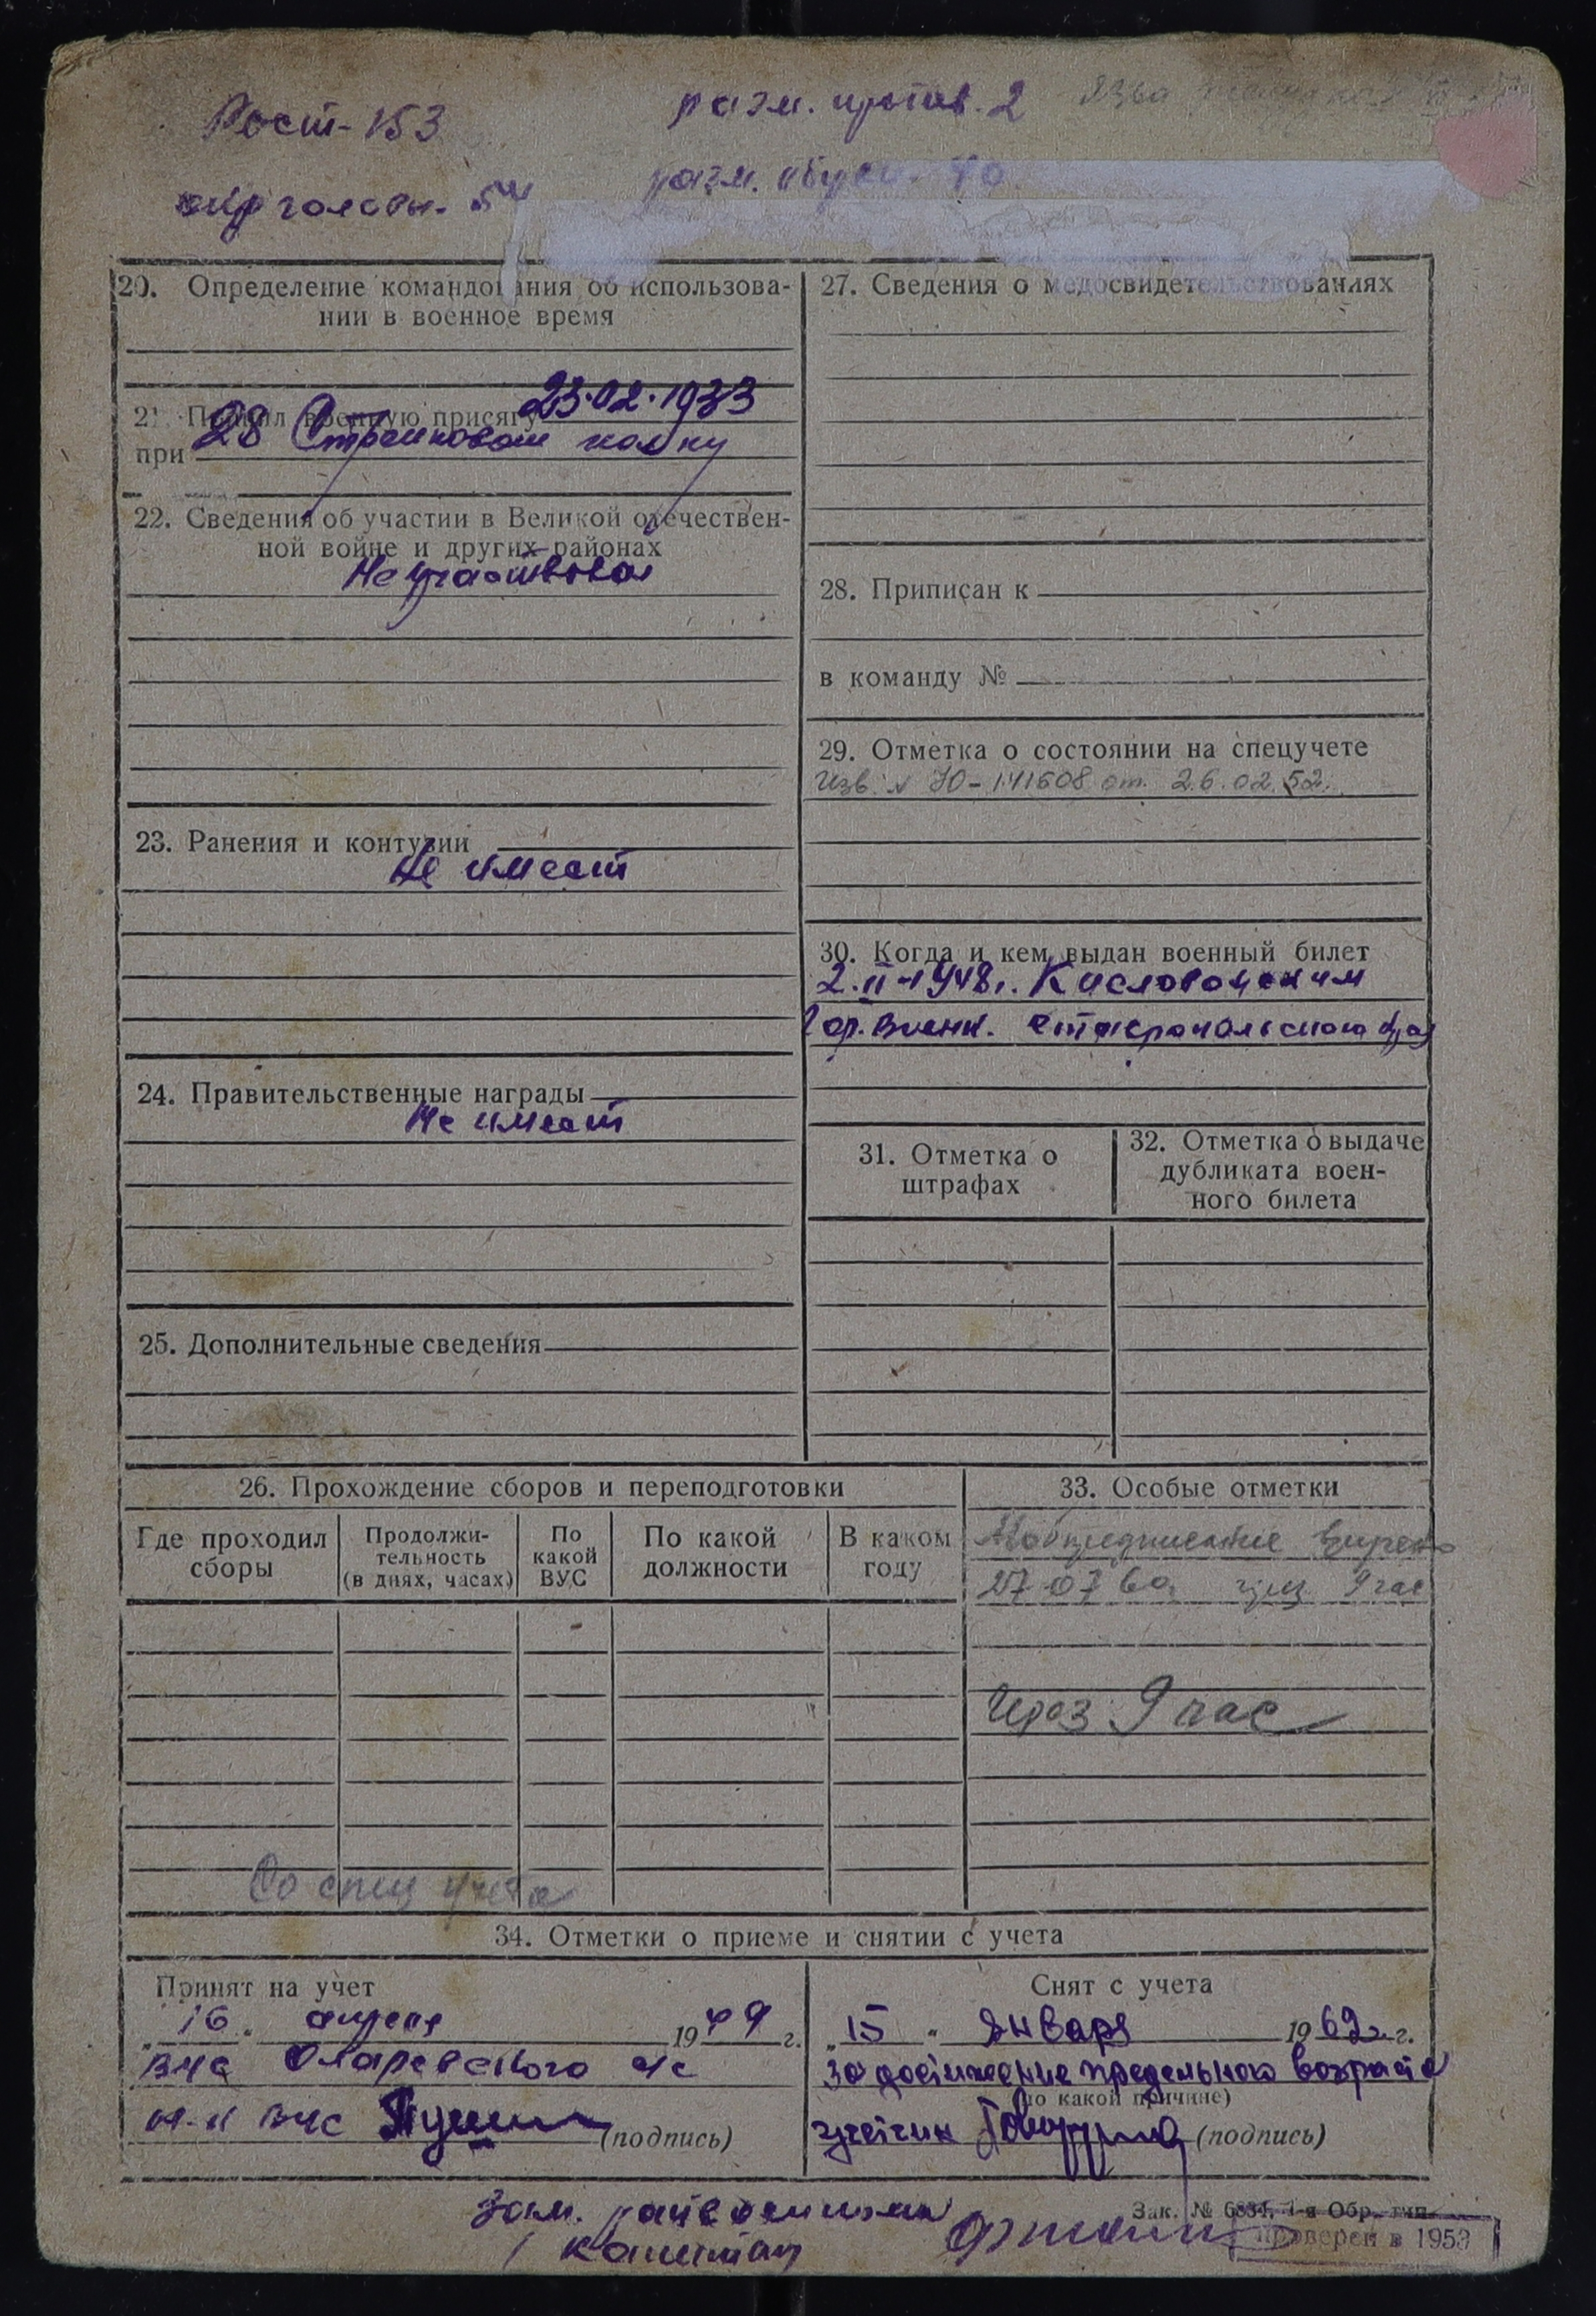 Рост-153
разм. против. 2
Язва
окр головы. 54
разм. обуви. 40
20. Определение командования об использова-
нии в военное время
21. Принял военную присягу 23.02.1933
при 28 Стрелковом полку
22. Сведения об участии в Великой отечествен-
ной войне и других районах
Не участвовал
23. Ранения и контузии
Не имеет
24. Правительственные награды
Не имеет
25. Дополнительные сведения
27. Сведения о медосвидетельствованиях
28. Приписан к
в команду №
29. Отметка о состоянии на спецучете
Изв. № Ю-141608 от. 26.02.52.
30. Когда и кем выдан военный билет
2.II-1948г. Кисловодским
Гор. Военк. Ставропольского края
31. Отметка о
штрафах
32. Отметка о выдаче
дубликата воен-
ного билета
26. Прохождение сборов и переподготовки
Где проходил
сборы
Продолжи-
тельность
(в днях, часах)
По
какой
ВУС
По какой
должности
В каком
году
Со спец учета
33. Особые отметки
Мобпредписание
27 07 60 9 час
Через 9 час
34. Отметки о приеме и снятии с учета
Принят на учет
„16“ апреля 1949 г.
ВУС с/с
н-к ВУС (подпись)
Снят с учета
„15“ января 1962 г.
за достижение предельного возраста
(по какой причине)
(подпись)
Зам. райвоенкома
капитан
Зак. № 6834, 1-я Обр. тип.
Проверен в 1953